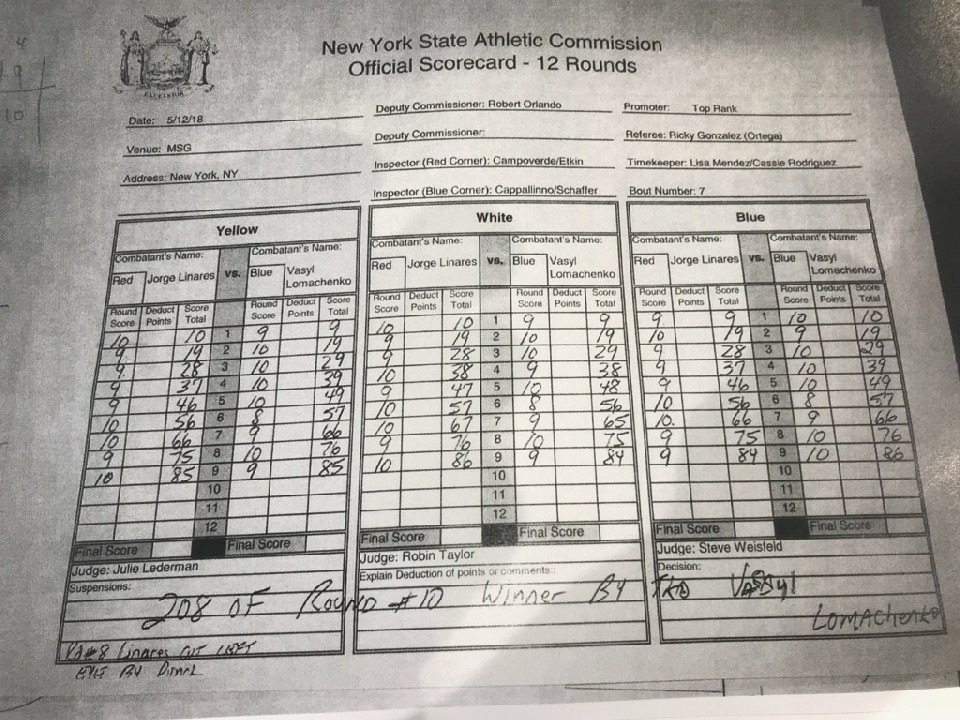 EXCELSIOR
New York State Athletic Commission
Official Scorecard - 12 Rounds
Date: 5/12/18
Deputy Commissioner: Robert Orlando
Promoter: Top Rank
Venue: MSG
Deputy Commissioner:
Referee: Ricky Gonzalez (Ortega)
Address: New York, NY
Inspector (Red Corner): Campoverde/Etkin
Timekeeper: Lisa Mendez/Cassie Rodriguez
Inspector (Blue Corner): Cappallinno/Schaffer
Bout Number: 7
Yellow
Combatant's Name: Combatant's Name:
Red Jorge Linares vs. Blue Vasyl Lomachenko
Round Score Deduct Points Score Total Round Score Deduct Points Score Total
10 10 1 9 9
9 19 2 10 19
9 28 3 10 29
9 37 4 10 39
9 46 5 10 49
10 56 6 8 57
10 66 7 9 66
9 75 8 10 76
10 85 9 9 85
10
11
12
Final Score Final Score
Judge: Julie Lederman
Suspensions:
White
Combatant's Name: Combatant's Name:
Red Jorge Linares vs. Blue Vasyl Lomachenko
Round Score Deduct Points Score Total Round Score Deduct Points Score Total
10 10 1 9 9
9 19 2 10 19
9 28 3 10 29
10 38 4 9 38
9 47 5 10 48
10 57 6 8 56
10 67 7 9 65
9 76 8 10 75
10 86 9 9 84
10
11
12
Final Score Final Score
Judge: Robin Taylor
Explain Deduction of points or comments:
Blue
Combatant's Name: Combatant's Name:
Red Jorge Linares vs. Blue Vasyl Lomachenko
Round Score Deduct Points Score Total Round Score Deduct Points Score Total
9 9 1 10 10
10 19 2 9 19
9 28 3 10 29
9 37 4 10 39
9 46 5 10 49
10 56 6 8 57
10. 66 7 9 66
9 75 8 10 76
9 84 9 10 86
10
11
12
Final Score Final Score
Judge: Steve Weisfeld
Decision:
208 OF Round #10 Winner By TKO Vasyl
Lomachenko
Linares CUT LEFT
EYE By